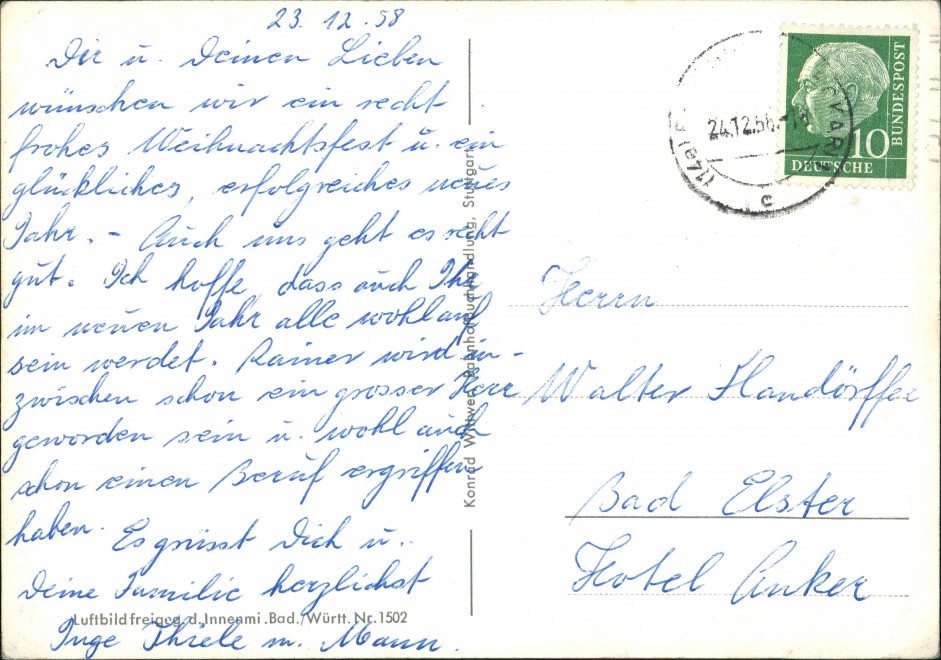 23. 12. 58
Dir u. Deinen Lieben
wünschen wir ein recht
frohes Weihnachtsfest u. ein
glückliches, erfolgreiches neues
Jahr. - Auch uns geht es recht
gut. Ich hoffe, dass auch Ihr
im neuen Jahr alle wohlauf
sein werdet. Rainer wird in-
zwischen schon ein grosser Herr
geworden sein u. wohl auch
schon einen Beruf ergriffen
haben. Es grüsst Dich u.
Deine Familie herzlichst
Inge Thiele m. Mann.
Luftbild freigeg. d. Innenmi. Bad./Württ. Nr. 1502
Konrad Wittwer, Bahnhofbuchhandlung, Stuttgart
24.12.58
(14a)
c
10
DEUTSCHE
BUNDESPOST
Herrn
Walter Flandörffer
Bad Elster
Hotel Anker